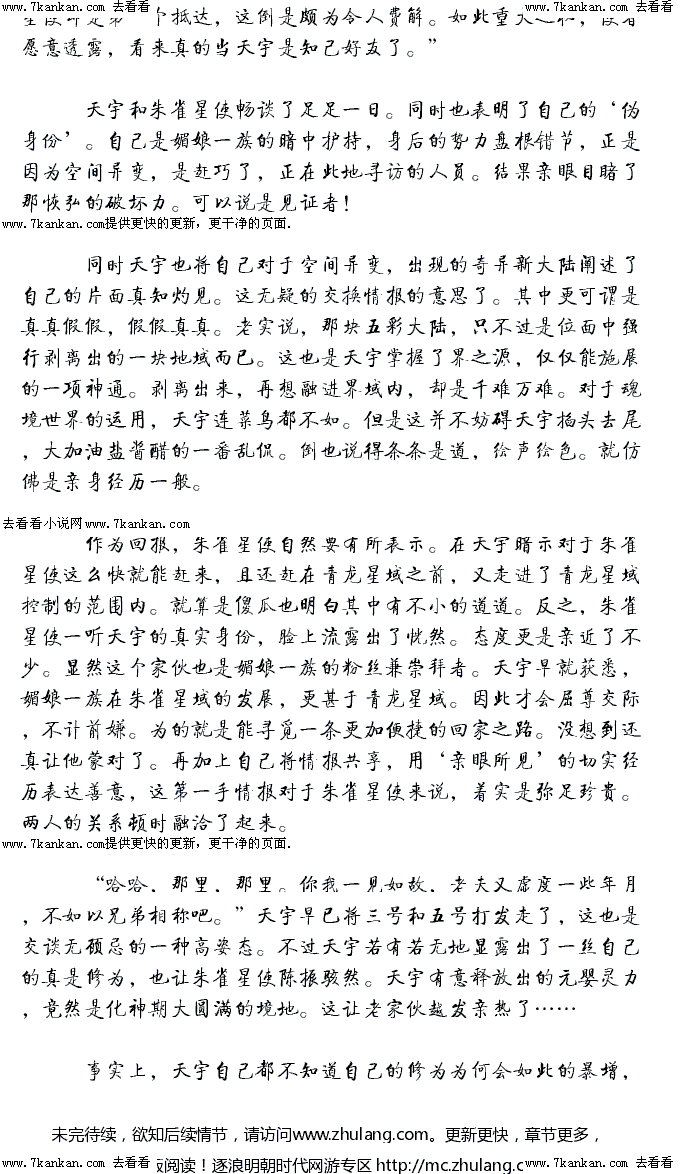 www.7kankan.com 去看看 www.7kankan.com 去看看 www.7kankan.com 去看看 www.7kankan.com 去看看
抵达，这倒是颇为令人费解。如此重大之秘，使者
愿意透露，看来真的当天宇是知己好友了。”
天宇和朱雀星使畅谈了足足一日。同时也表明了自己的‘伪
身份’。自己是媚娘一族的暗中护持，身后的势力盘根错节，正是
因为空间异变，是赶巧了，正在此地寻访的人员。结果亲眼目睹了
那恢弘的破坏力。可以说是见证者！
www.7kankan.com提供更快的更新，更干净的页面.
同时天宇也将自己对于空间异变，出现的奇异新大陆阐述了
自己的片面真知灼见。这无疑的交换情报的意思了。其中更可谓是
真真假假，假假真真。老实说，那块五彩大陆，只不过是位面中强
行剥离出的一块地域而已。这也是天宇掌握了界之源，仅仅能施展
的一项神通。剥离出来，再想融进界域内，却是千难万难。对于魂
境世界的运用，天宇连菜鸟都不如。但是这并不妨碍天宇掐头去尾
，大加油盐酱醋的一番乱侃。倒也说得条条是道，绘声绘色。就仿
佛是亲身经历一般。
去看看小说网www.7kankan.com
作为回报，朱雀星使自然要有所表示。在天宇暗示对于朱雀
星使这么快就能赶来，且还赶在青龙星域之前，又走进了青龙星域
控制的范围内。就算是傻瓜也明白其中有不小的道道。反之，朱雀
星使一听天宇的真实身份，脸上流露出了恍然。态度更是亲近了不
少。显然这个家伙也是媚娘一族的粉丝兼崇拜者。天宇早就获悉，
媚娘一族在朱雀星域的发展，更甚于青龙星域。因此才会屈尊交际
，不计前嫌。为的就是能寻觅一条更加便捷的回家之路。没想到还
真让他蒙对了。再加上自己将情报共享，用‘亲眼所见’的切实经
历表达善意，这第一手情报对于朱雀星使来说，着实是弥足珍贵。
两人的关系顿时融洽了起来。
www.7kankan.com提供更快的更新，更干净的页面.
“哈哈．那里．那里。你我一见如故．老夫又虚度一些年月
，不如以兄弟相称吧。”天宇早已将三号和五号打发走了，这也是
交谈无顾忌的一种高姿态。不过天宇若有若无地显露出了一丝自己
的真是修为，也让朱雀星使陈振骇然。天宇有意释放出的元婴灵力
，竟然是化神期大圆满的境地。这让老家伙越发亲热了……
事实上，天宇自己都不知道自己的修为为何会如此的暴增，
未完待续，欲知后续情节，请访问www.zhulang.com。更新更快，章节更多，
www.7kankan.com 去看看 阅读！逐浪明朝时代网游专区 http://mc.zhulang.com www.7kankan.com 去看看